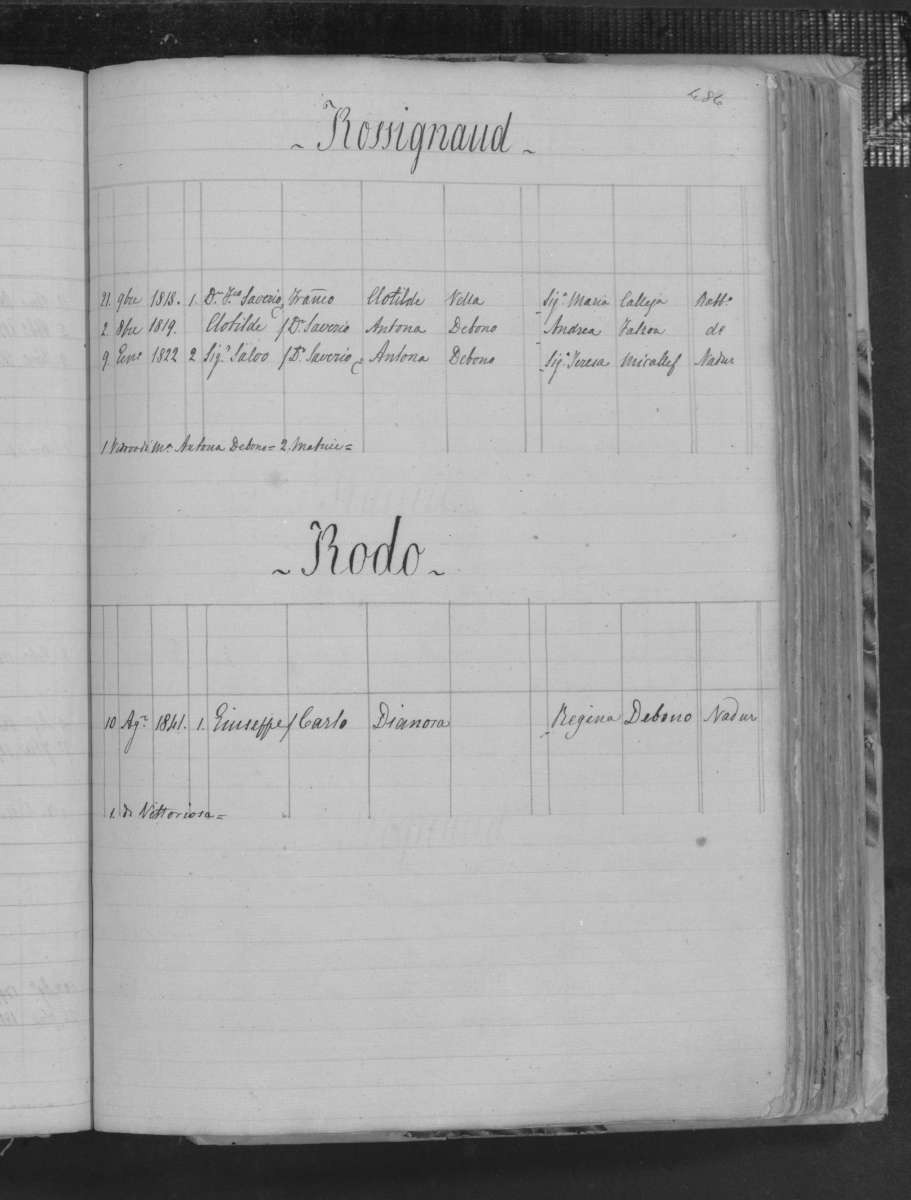 486
~ Rossignaud ~
21. 9bre 1818. 1. Dn. Fco Saverio Franco Clotilde Vella Sigra Maria Calleja Rabto
2. 8bre 1819. Clotilde f Dr. Saverio Antona Debono Andrea do
9. Genro 1822 2 Sigr Salvo f Dr. Saverio Antona Debono Sigra Teresa Micallef Nadur
1. Vedovo di Ma Antona Debono = 2. Matrice =
~ Rodo ~
10 Agto 1841. 1. Giuseppe f Carlo Dianora Regina Debono Nadur
1. di Vittoriosa =